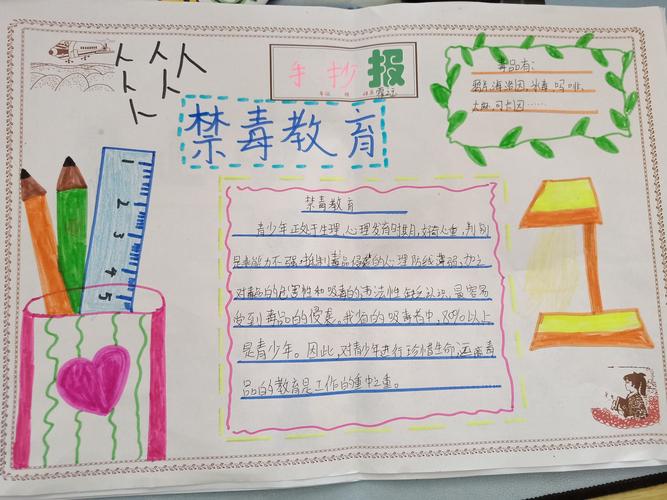 手抄报
禁毒教育
毒品有:
鸦片,海洛因,冰毒,吗啡,
大麻,可卡因……
1
2
3
4
5
禁毒教育
青少年正处于生理、心理发育时期,好奇心重,判别
是非能力不强,抵制毒品侵袭的心理防线薄弱,加之
对毒品的危害性和吸毒的违法性缺乏认识,最容易
受到毒品的侵袭。我省的吸毒者中,80%以上
是青少年。因此,对青少年进行珍惜生命,远离毒
品的教育是工作的重中之重。